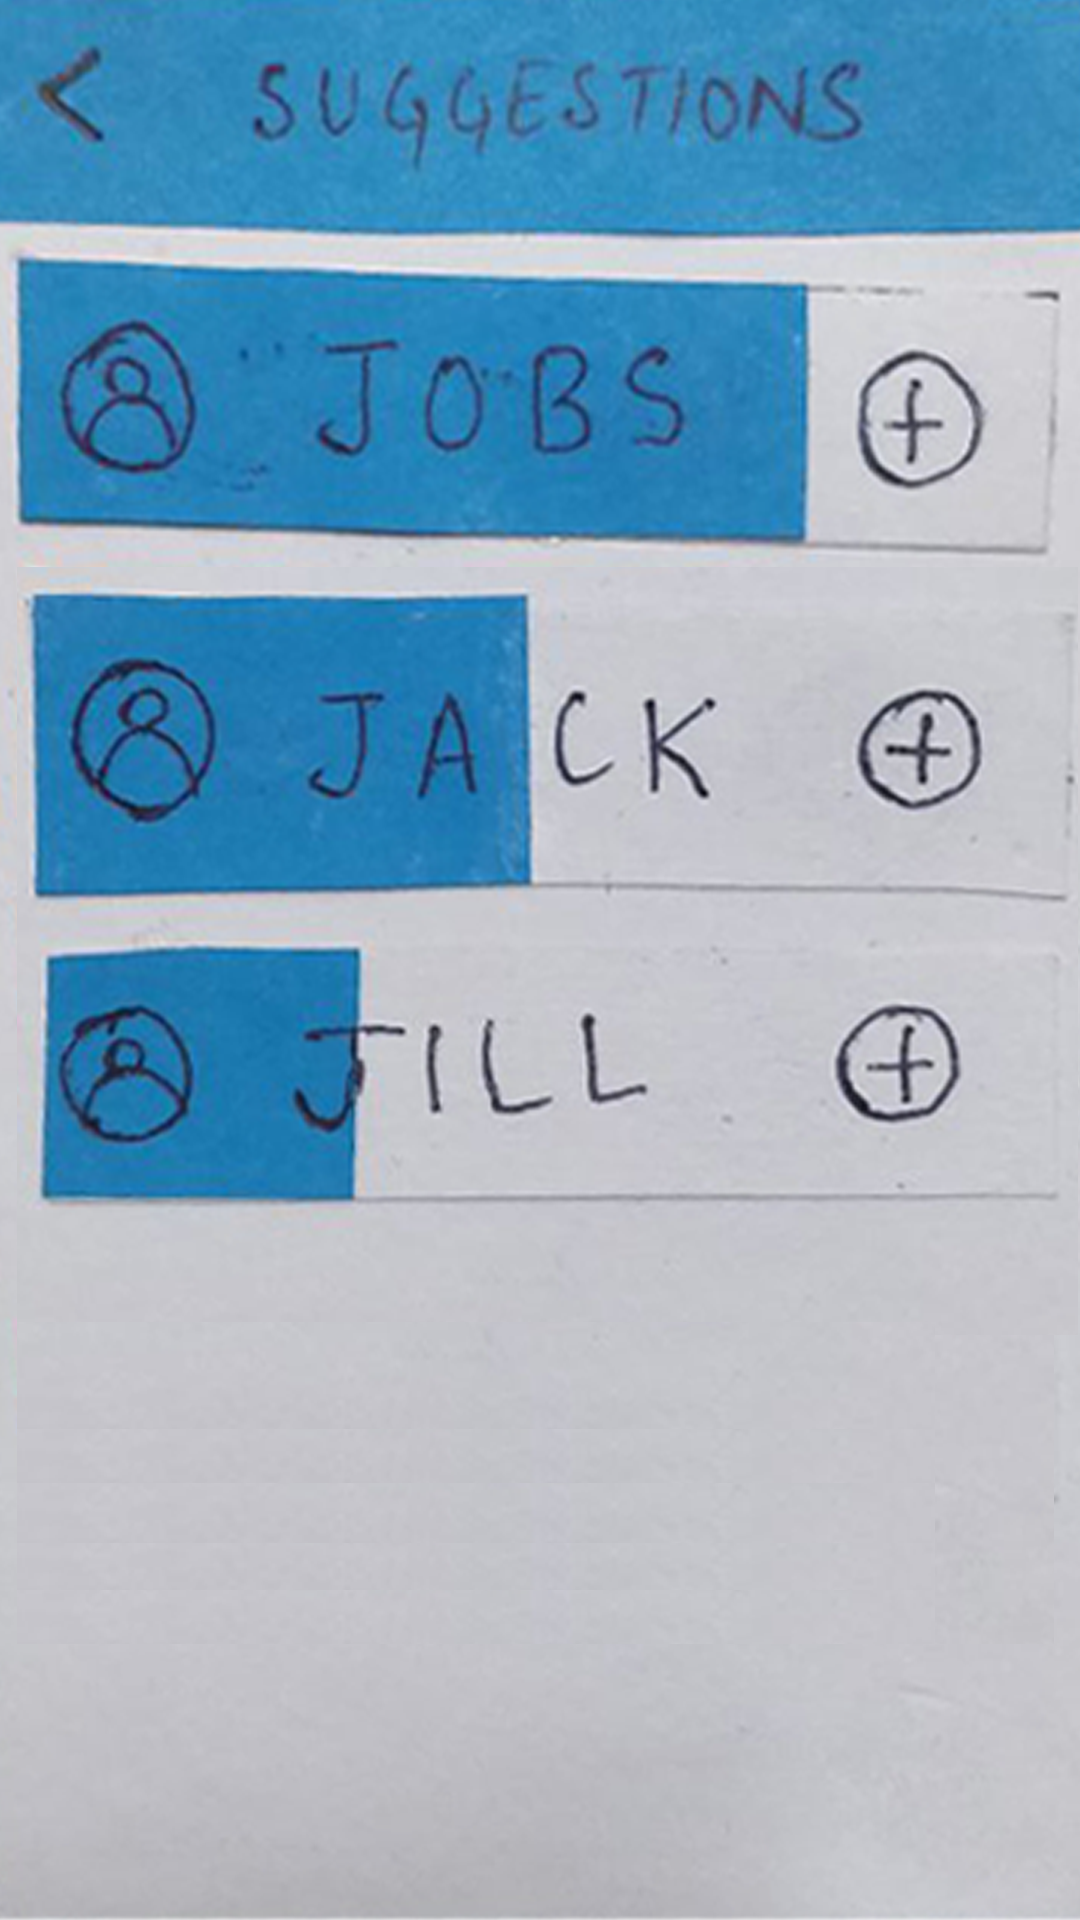 < SUGGESTIONS
JOBS +
JACK +
JILL +